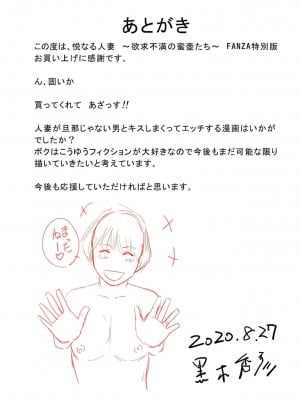 あとがき
この度は、悦なる人妻 ～欲求不満の蜜壺たち～ FANZA特別版
お買い上げに感謝です。
ん、固いか
買ってくれて あざっす!!
人妻が旦那じゃない男とキスしまくってエッチする漫画はいかが
でしたか？
ボクはこうゆうフィクションが大好きなので今後もまだ可能な限り
描いていきたいと考えています。
今後も応援していただければと思います。
まったねー♡
2020.8.27
黒木秀彦